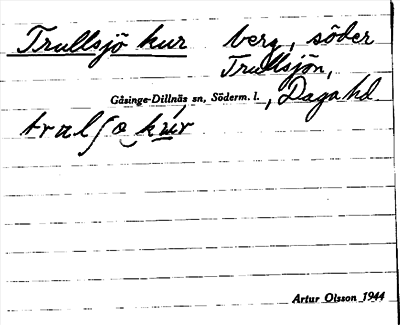 Trullsjö kur berg, söder
Trullsjön,
Gåsinge-Dillnäs sn, Söderm. l., Daga hd
tralʃo kúr
Artur Olsson 1944